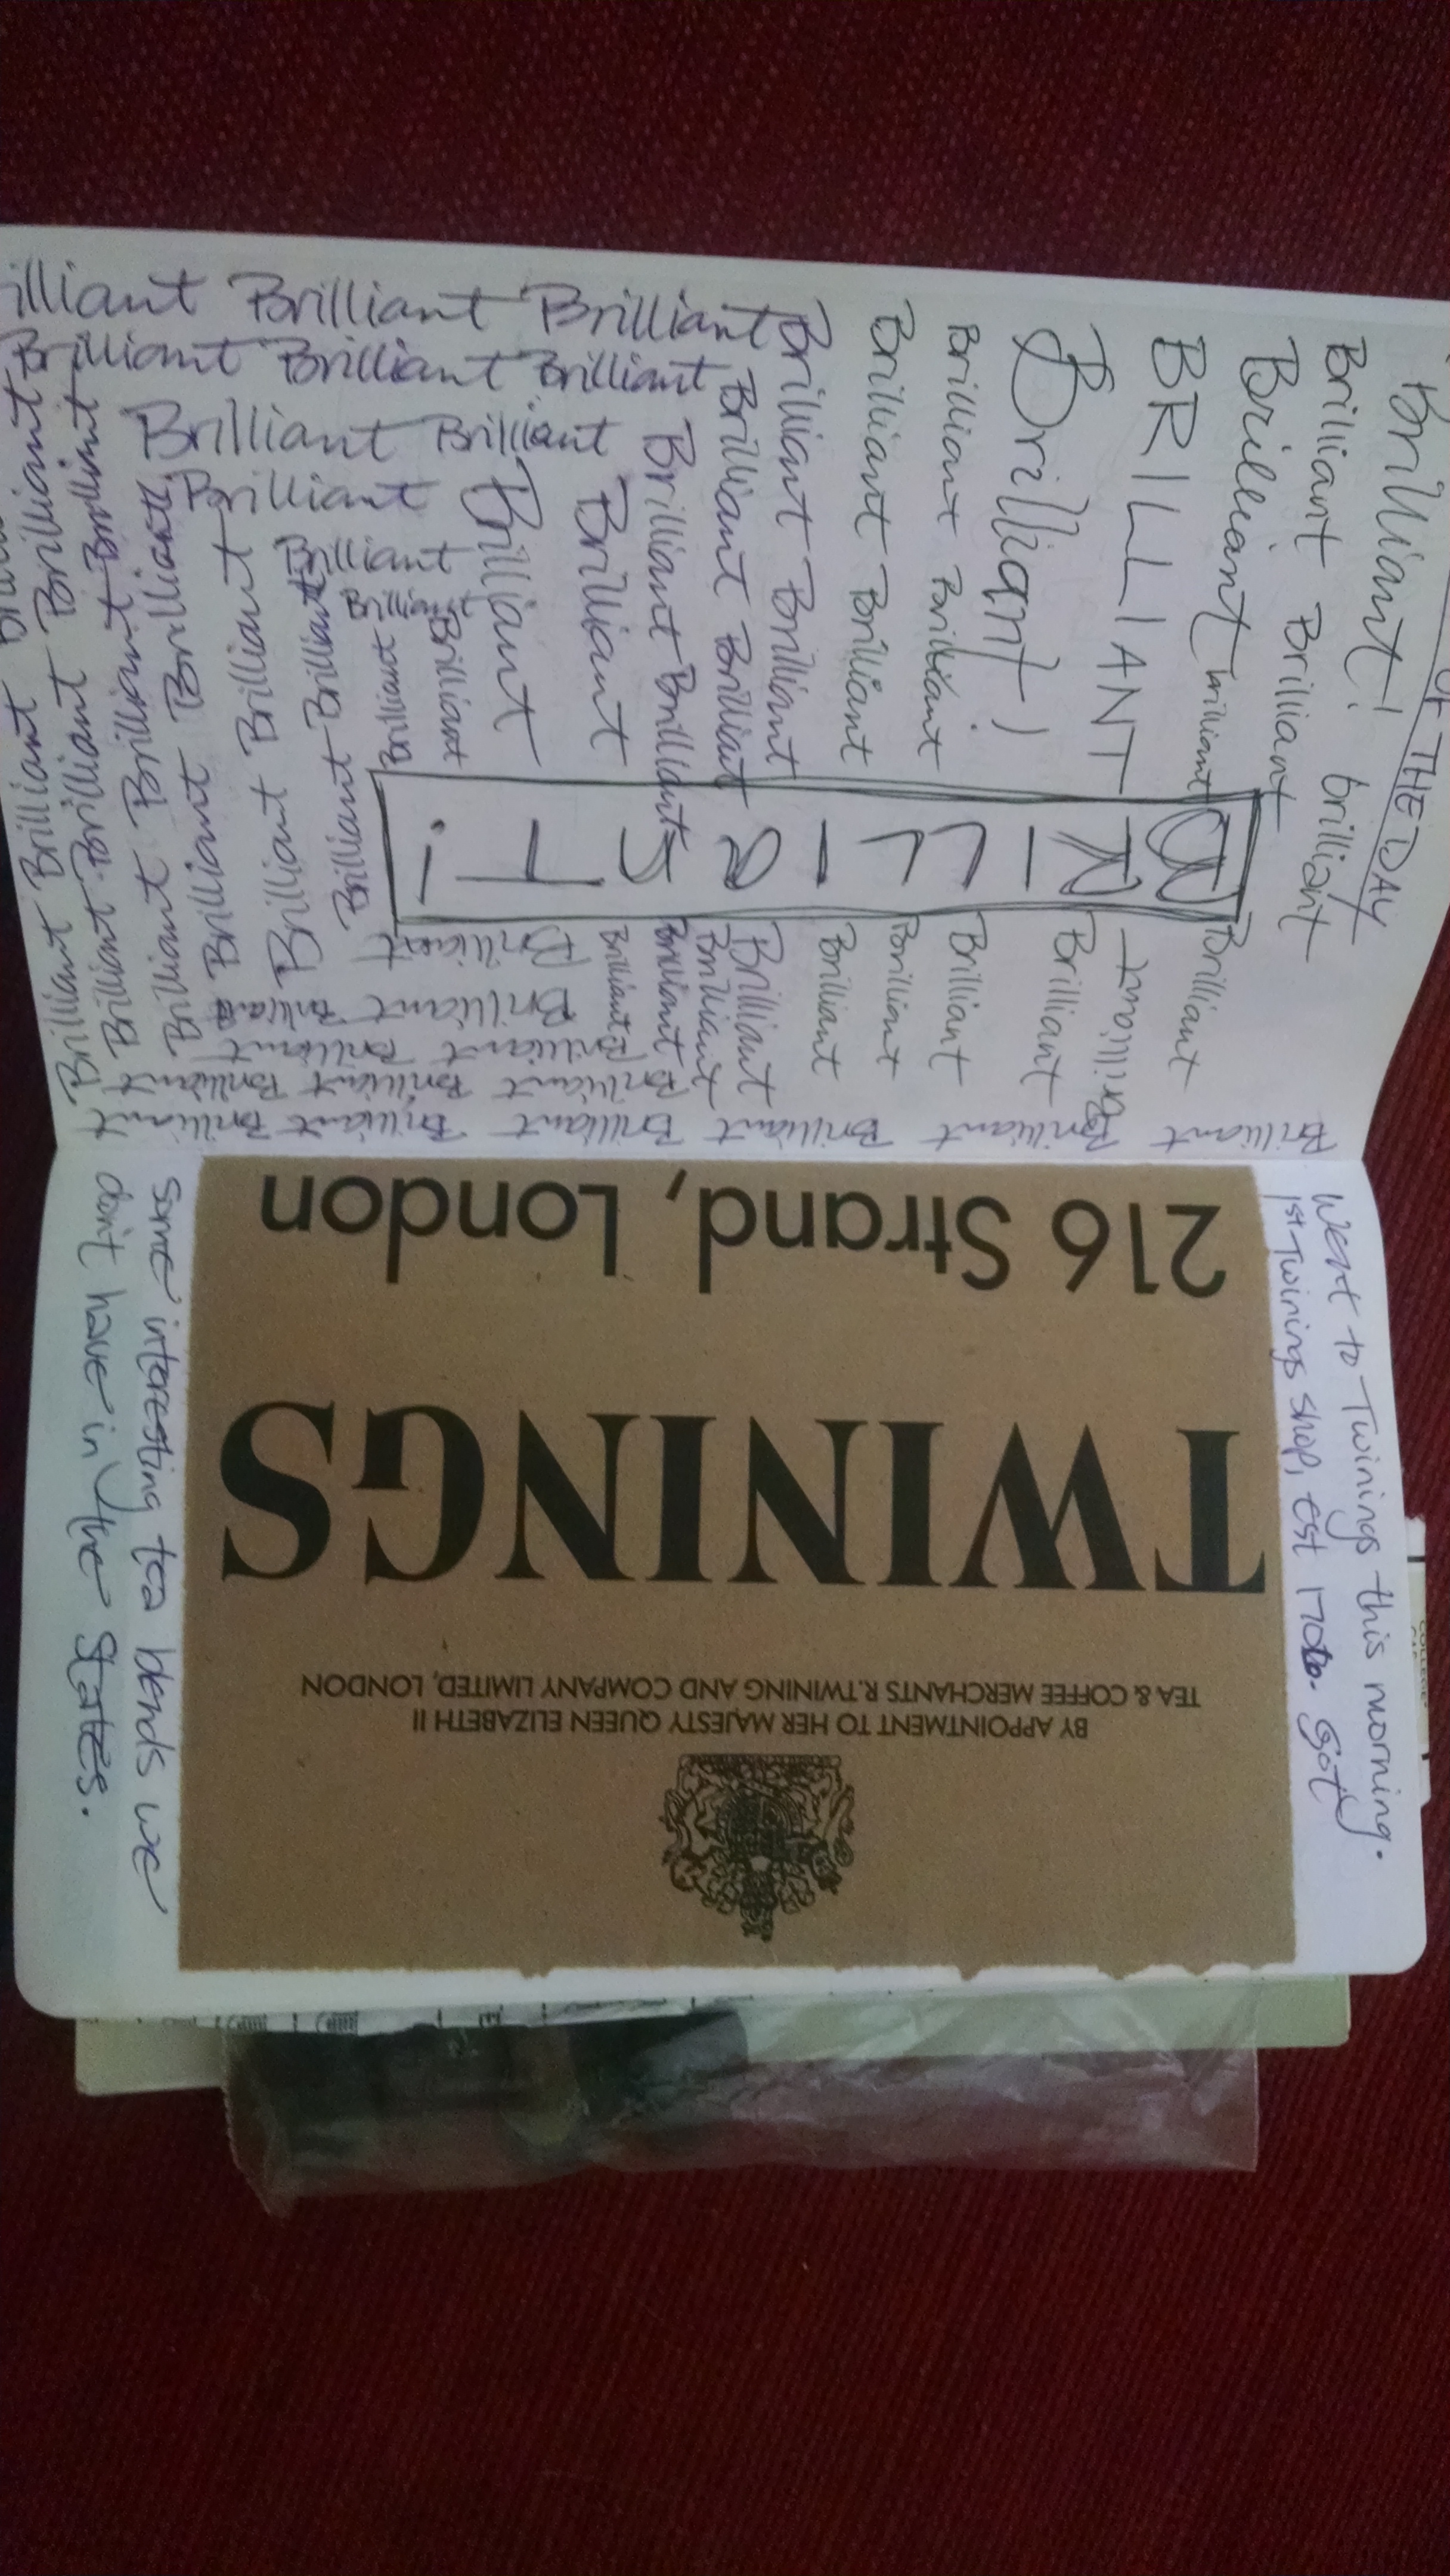 OF THE DAY
Brilliant! brilliant
Brilliant Brilliant
Brilliant brilliant Brilliant
BRILLIANT Brilliant
Brilliant! Brilliant
Brilliant Brilliant Brilliant
Brilliant Brilliant Brilliant
Brilliant Brilliant Brilliant
Brilliant Brilliant Brilliant
Brilliant Brilliant Brilliant
Brilliant Brilliant
Brilliant
Brilliant
Brilliant
Brilliant Brilliant
Brilliant Brilliant
Brilliant Brilliant Brilliant
Brilliant Brilliant Brilliant
Brilliant Brilliant Brilliant
Brilliant Brilliant Brilliant
Brilliant Brilliant Brilliant
Brilliant Brilliant Brilliant
Brilliant Brilliant
Brilliant
Brilliant
Brilliant
Brilliant
Brilliant Brilliant
Brilliant Brilliant Brilliant
Brilliant Brilliant Brilliant Brilliant
Brilliant Brilliant Brilliant Brilliant Brilliant Brilliant Brilliant Brilliant
Went to Twinings this morning.
1st Twinings shop, est 1706. Got
BY APPOINTMENT TO HER MAJESTY QUEEN ELIZABETH II
TEA & COFFEE MERCHANTS R.TWINING AND COMPANY LIMITED, LONDON
TWININGS
216 Strand, London
some interesting tea blends we
don't have in the States.